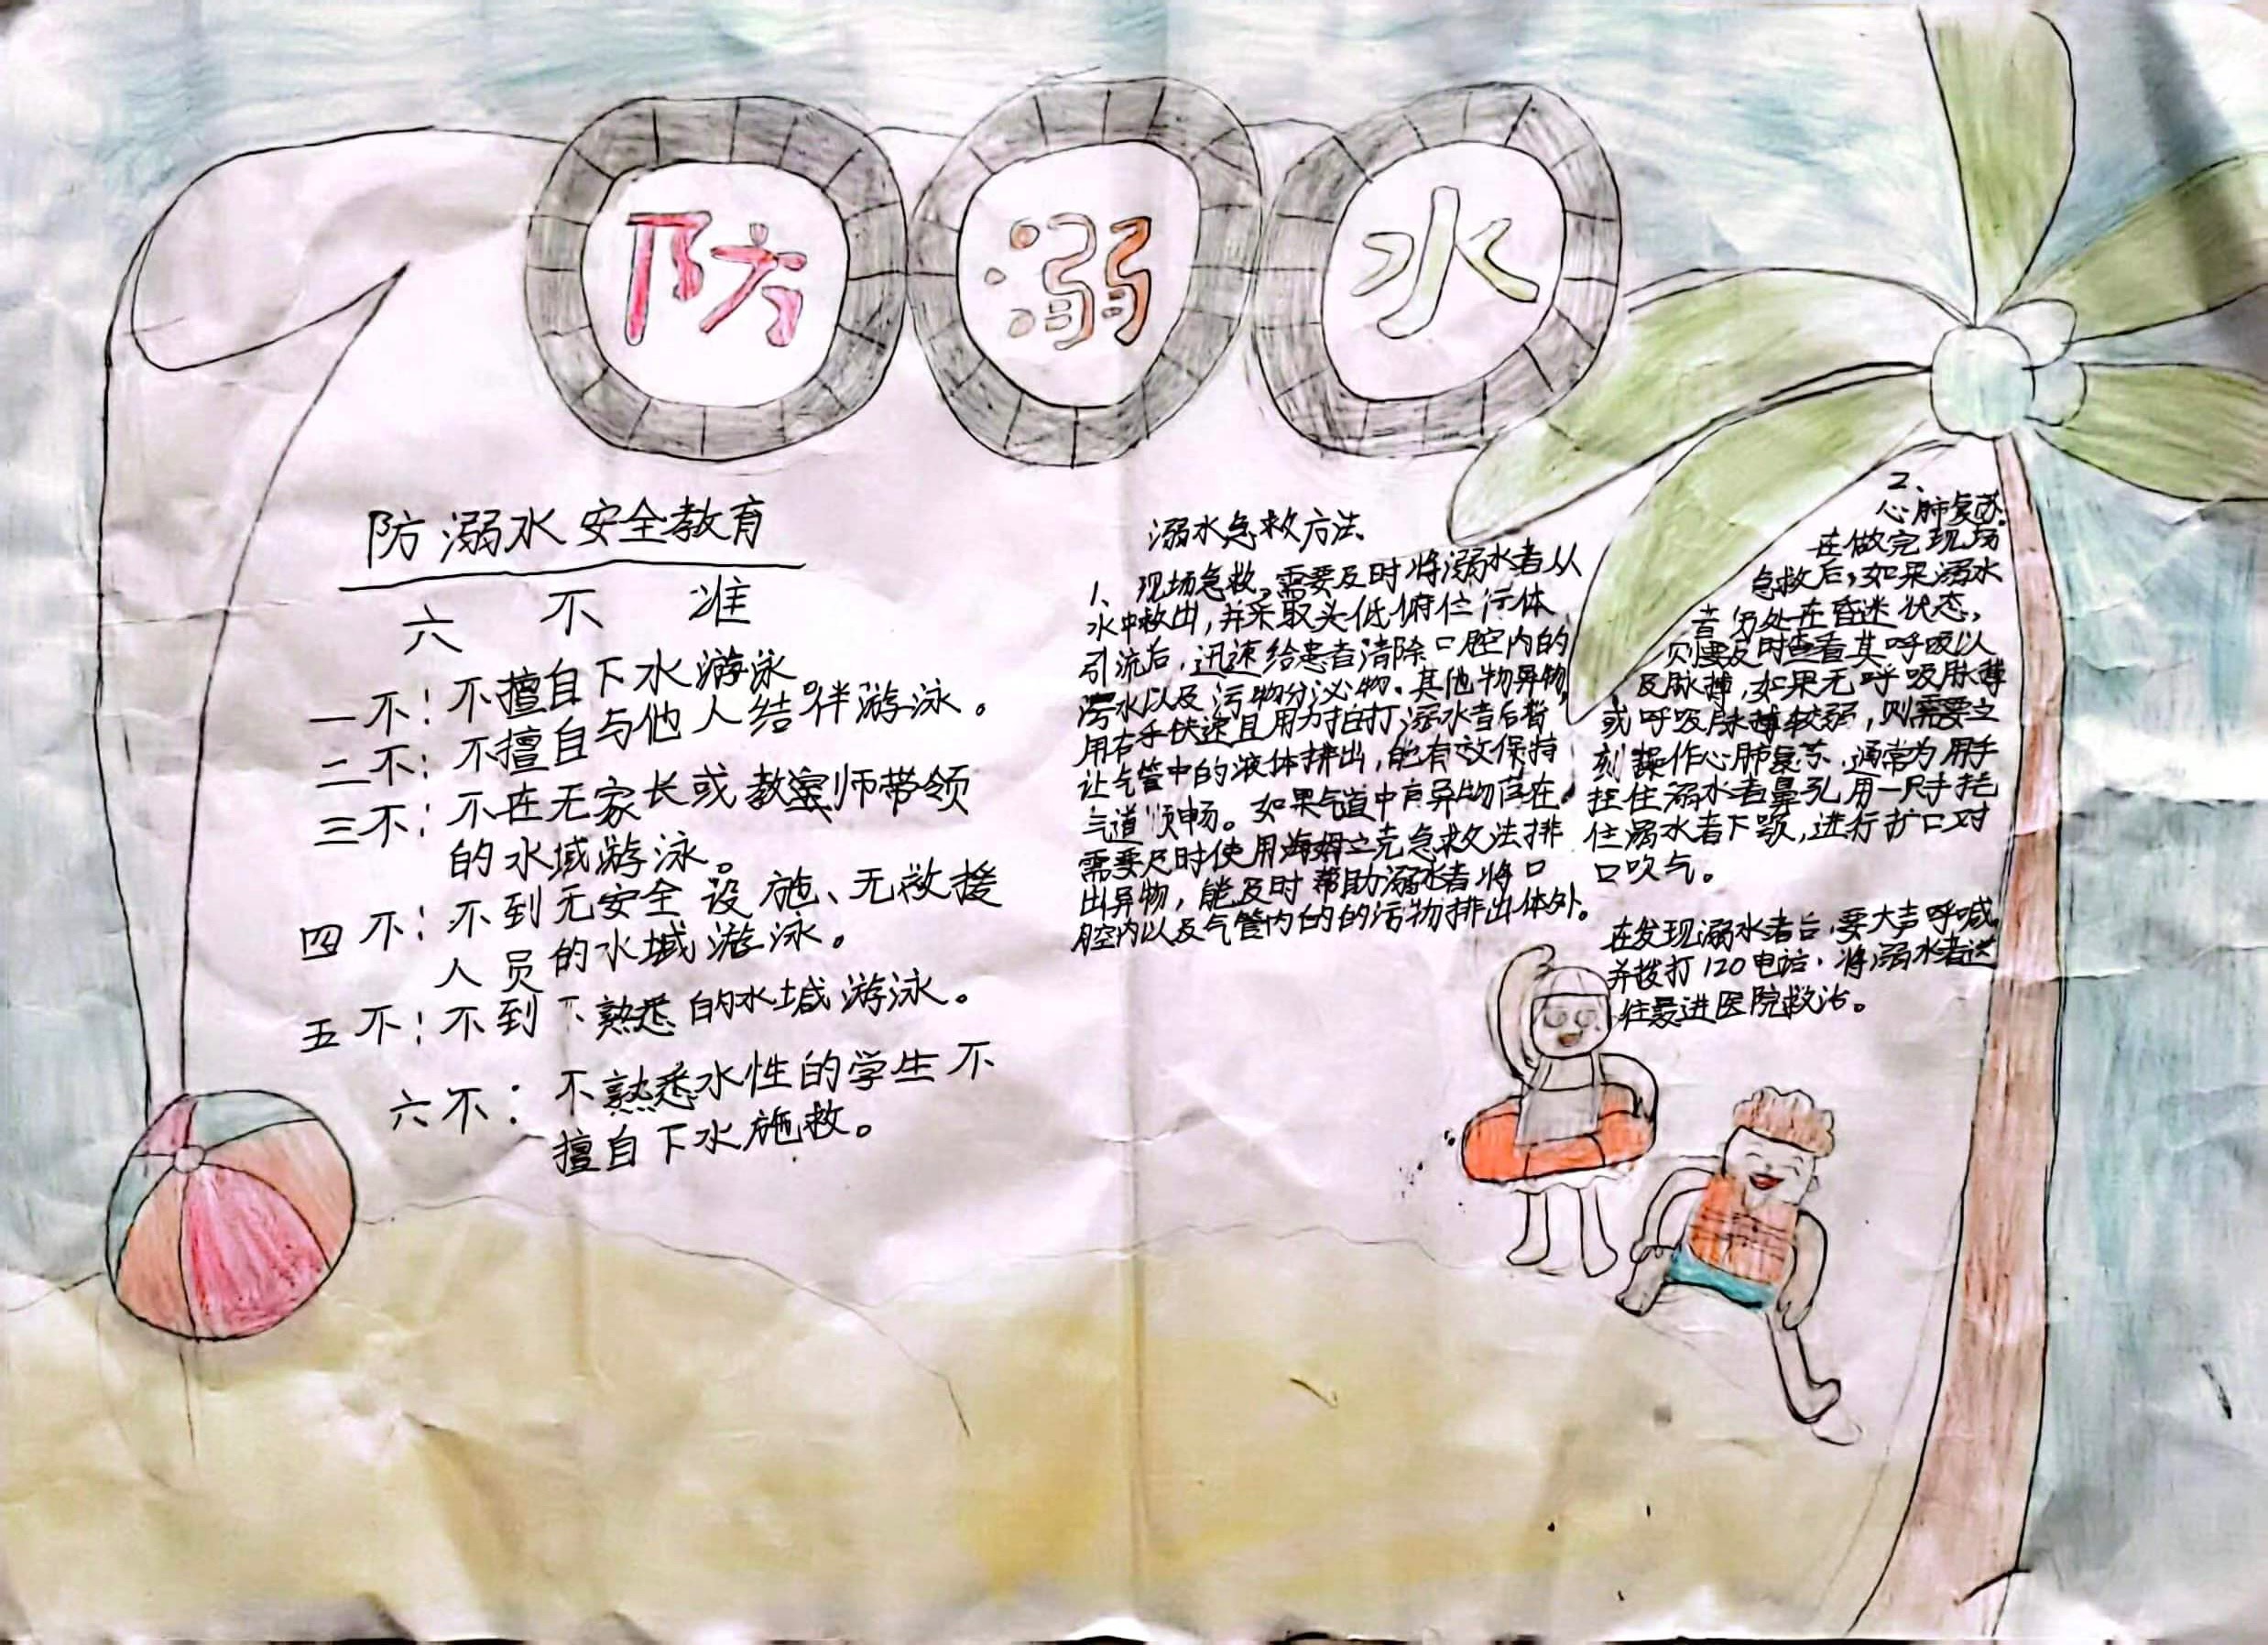 防溺水
防溺水安全教育
六不准
一不：不擅自下水游泳。
二不：不擅自与他人结伴游泳。
三不：不在无家长或教师带领
的水域游泳。
四不：不到无安全设施、无救援
人员的水域游泳。
五不：不到不熟悉的水域游泳。
六不：不熟悉水性的学生不
擅自下水施救。
溺水急救方法.
1、现场急救,需要及时将溺水者从
水中救出,并采取头低俯位行体
引流后,迅速给患者清除口腔内的
污水以及污物分泌物.其他物异物,
用右手快速且用力拍打溺水者后背
让气管中的液体排出,能有效保持
气道顺畅。如果气道中有异物存在.
需要及时使用海姆立克急救法排
出异物,能及时帮助溺水者将口
腔内以及气管内的的污物排出体外。
2、
心肺复苏.
在做完现场
急救后,如果溺水
者另处在昏迷状态,
则要及时查看其呼吸以
及脉搏,如果无呼吸脉薄
或呼吸脉搏较弱,则需要立
刻操作心肺复苏,通常为用手
捏住溺水者鼻孔用一只手托
住溺水者下颚,进行扩口对
口吹气。
在发现溺水者后,要大声呼喊,
并拨打120电话,将溺水者送
往最进医院救治。